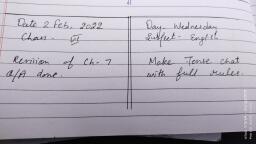 Date 2 Feb, 2022
Class - VI
Revision of Ch-7
Q/A done.
Day - Wednesday
Subject - English
Make Tense chat
with full rules.